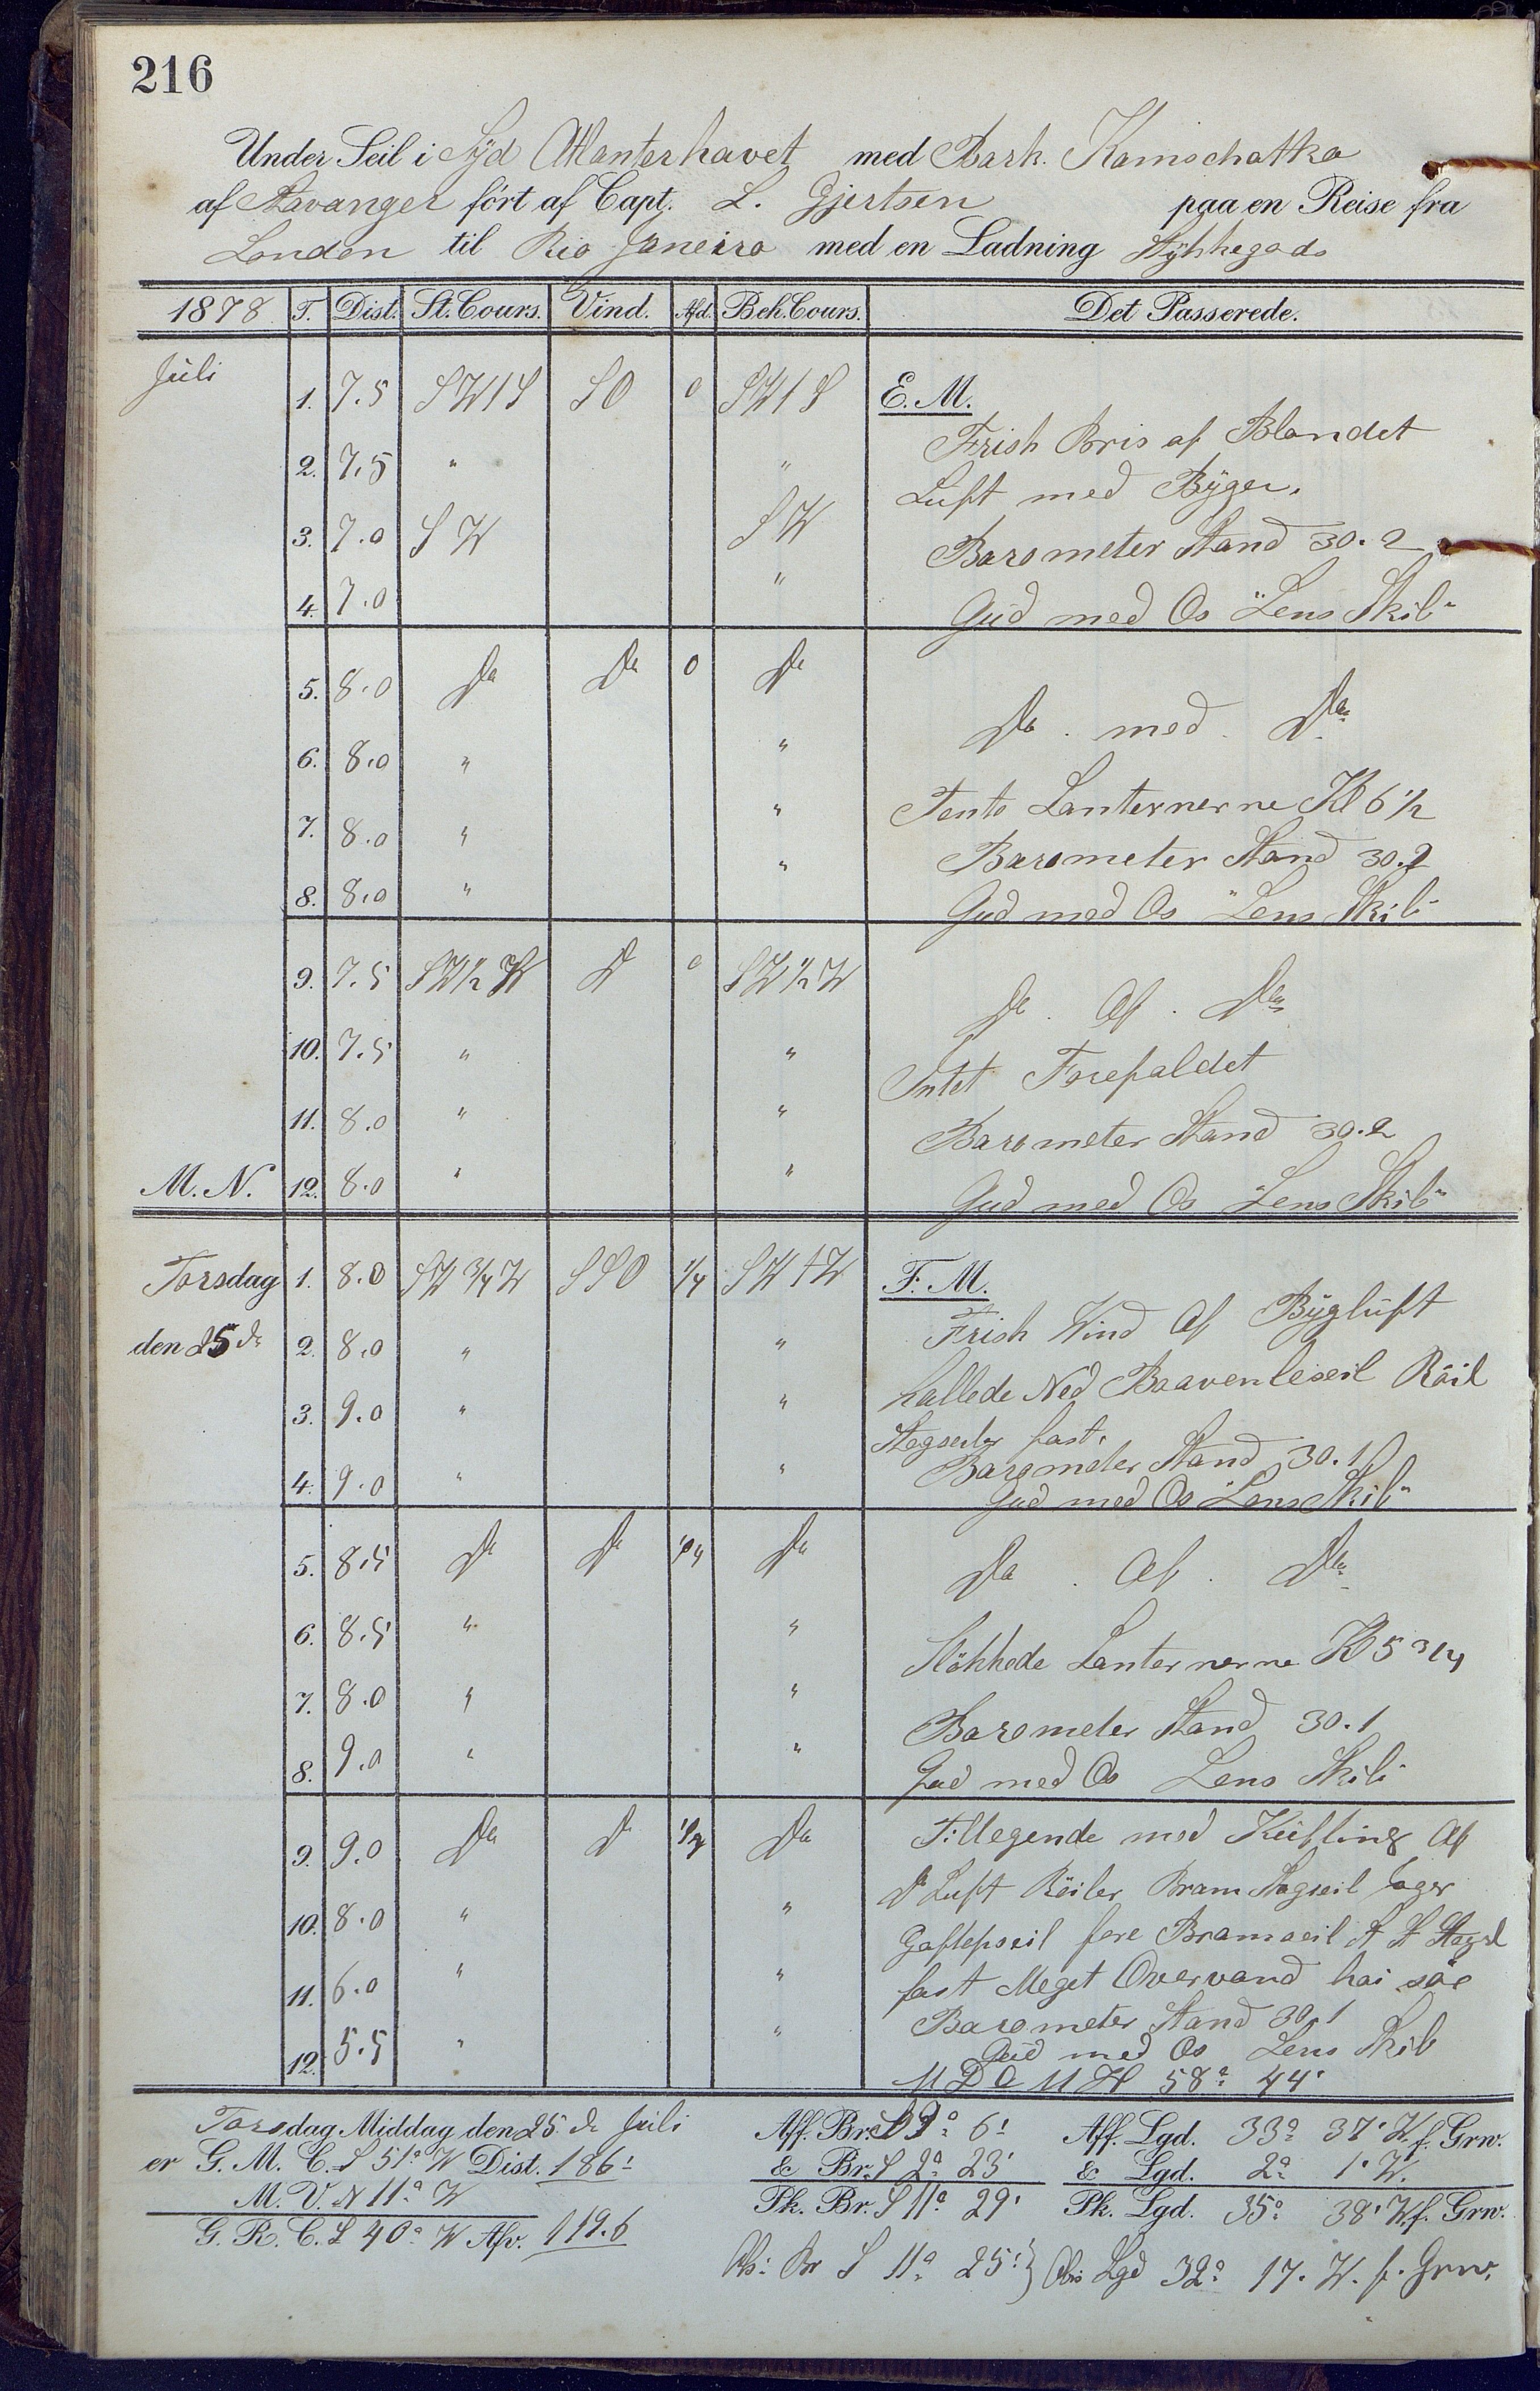 216
Under Seil i Syd Atlanterhavet med Bark. Kamschatka
af Stavanger fört af Capt. L. Gjertsen paa en Reise fra
London til Rio Janeiro med en Ladning Stÿkkegods
1878 T. Dist. St. Cours. Vind. Afd. Beh. Cours. Det Passerede.
Juli
1. 7.5 SW1S SO 0 SW1S E. M.
Frisk Bris af Blandet
2. 7.5 " "
Luft med Bÿger.
3. 7.0 SW SW
Barometer Stand 30.2
4. 7.0 "
Gud med Os "Lens Skib"
5. 8.0 Do Do 0 Do
Do . med . Do
6. 8.0 " "
Tento Lanternerne Kl 6 1/2
7. 8.0 " "
Barometer Stand 30.2
8. 8.0 " "
Gud med Os "Lens Skib"
9. 7.5 SW 1/2 W Do 0 SW 1/2 W
Do . Af . Do
10. 7.5 " "
Intet Forefaldet
11. 8.0 " "
Barometer Stand 30.2
M. N. 12. 8.0 " "
Gud med Os "Lens Skib"
Torsdag 1. 8.0 SW 3/4 W SSO 1/4 SW 1 W F. M.
Frisk Wind Af Bÿgluft
den 25 de 2. 8.0 " "
hallede Ned Baavenleseil Röil
3. 9.0 " "
Stagseiler fast.
Barometer Stand 30.1
4. 9.0 " "
Gud med Os "Lens Skib"
5. 8.5 Do Do 1/4 Do
Do . Af . Do
6. 8.5 " "
Slökkede Lanternerne Kl 5 3/4
7. 8.0 " "
Barometer Stand 30.1
8. 9.0 " "
Gud med Os Lens Skib
9. 9.0 Do Do 1/4 Do Tillegende med Kuling Af
Do Luft Röiler Bram Stagseil Jager
10. 8.0 " "
Gaftepseil fore Bramseil St St Stagsl
11. 6.0 " "
fast Meget Overvand hai söe
Barometer Stand 30.1
12. 5.5 " "
Gud med Os Lens Skib
58° 44'
Torsdag Middag den 25. de Juli Aff. Br. S 9° 6' Aff. Lgd. 33° 37' W. f. Grw.
er G. M. C. S 51° W Dist. 186' & Br. S 2° 23' & Lgd. 2° 1' W.
M. V. N 11° W Pk. Br. S 11° 29' Pk. Lgd. 35° 38' W. f. Grw.
G. R. C. S 40° W Afv. 119.6
Obs: Br S 11° 25' } Obs Lgd 32° 17. W. f. Grw.